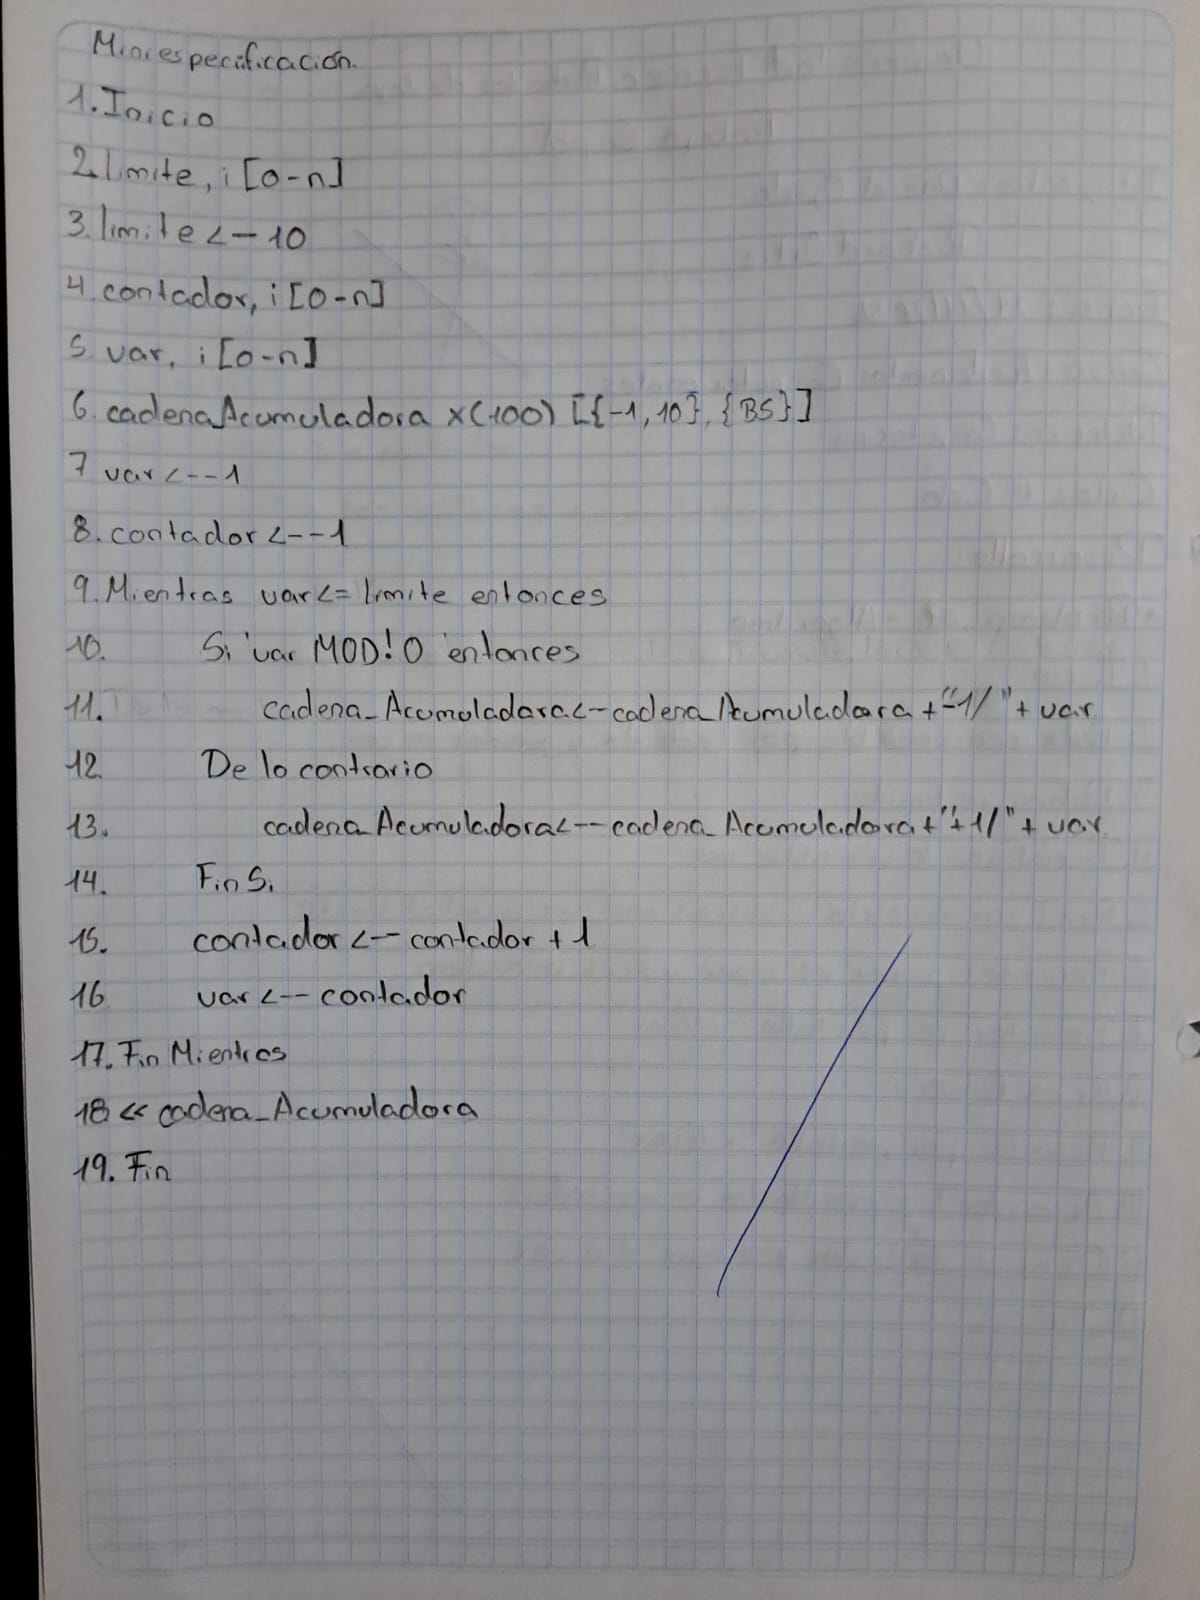 Miniespecificación.
1. Inicio
2. limite, i [0-n]
3. limite <-- 10
4. contador, i [0-n]
5. var, i [0-n]
6. cadena_Acumuladora x(100) [{-1, 10}, {BS}]
7 var <--1
8. contador <--1
9. Mientras var <= limite entonces
10. Si var MOD!0 entonces
11. cadena_Acumuladora <-- cadena_Acumuladora + "-1/" + var
12. De lo contrario
13. cadena_Acumuladora <-- cadena_Acumuladora + "+1/" + var
14. Fin Si
15. contador <-- contador + 1
16. var <-- contador
17. Fin Mientras
18 << cadena_Acumuladora
19. Fin